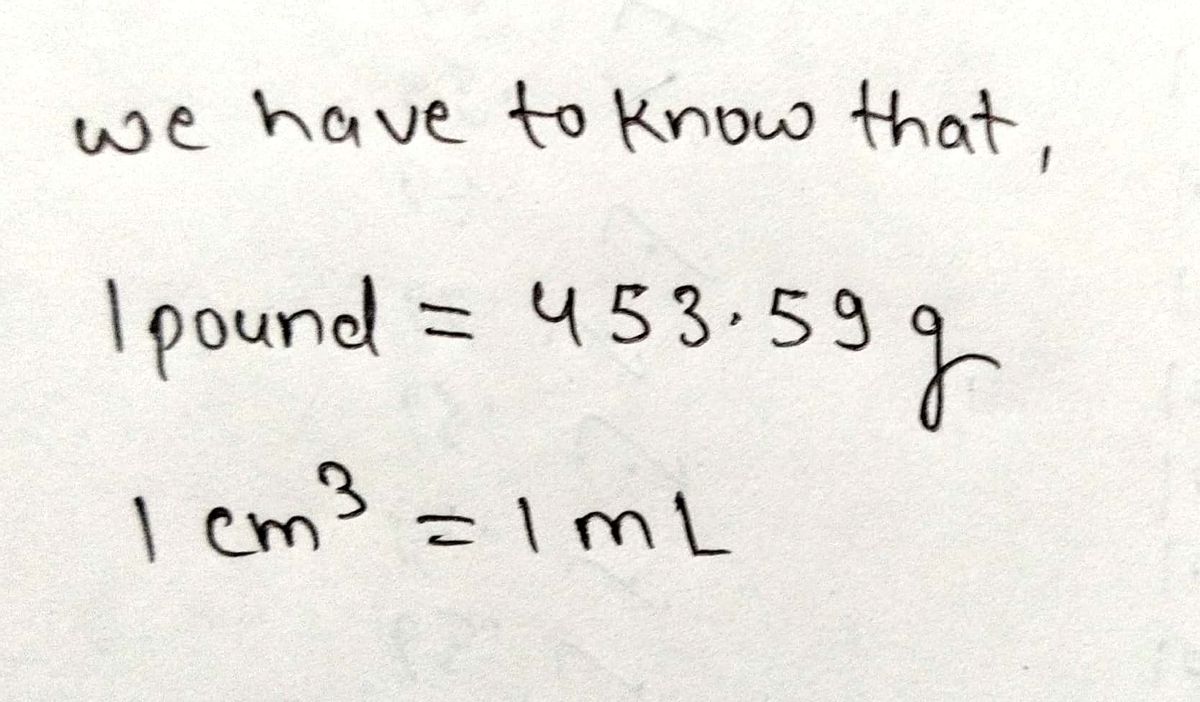 we have to know that,
1 pound = 453.59 g
1 cm³ = 1 mL